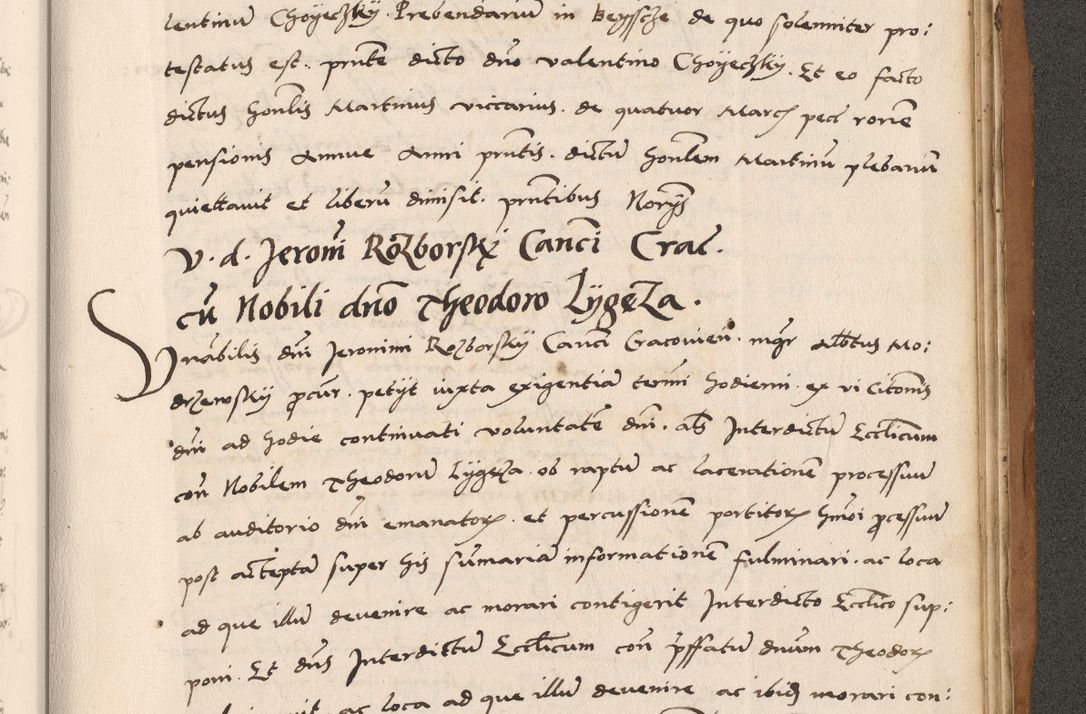 lentinum Choyeczky. Prebendarium in Beysche de quo solenniter pro:
testatus est. pnte dicto dno valentino Choyeczky. Et eo facto
dictus honlis Martinus viccarius. de quatuor March pec rone
pensionis Annue Anni pntis. dictu honlem Martinu plebanu
quiettavit et liberu dimisit. pntibus Norys
V. d. Jeroni Rozborsky Canci Crac.
cu Nobili dno Theodoro Lygęza.
Vnabilis dni Jeronimi Rozborsky Canci Cracovien. mgr Albtus Mo:
drzewsky procur. petyt iuxta exigentia termi hodierni. ex vi Citonis
dni ad hodie continuati voluntate dni. als Interdictu Ecclicum
con Nobilem Theodoru Lygęza. ob raptu ac lacerationē processuu
ab auditorio dni emanatorz. et percussionē portitorz hmoi processuu
post accepta super his sumaria informationē fulminari. ac loca
ad que illu devenire ac morari contigerit Interdicto Ecclico sup:
poni. Et dns Interdictu Ecclicum con prffatu dnum Theodorz
ac loca ad que illu devenire ac ibidz morari con: